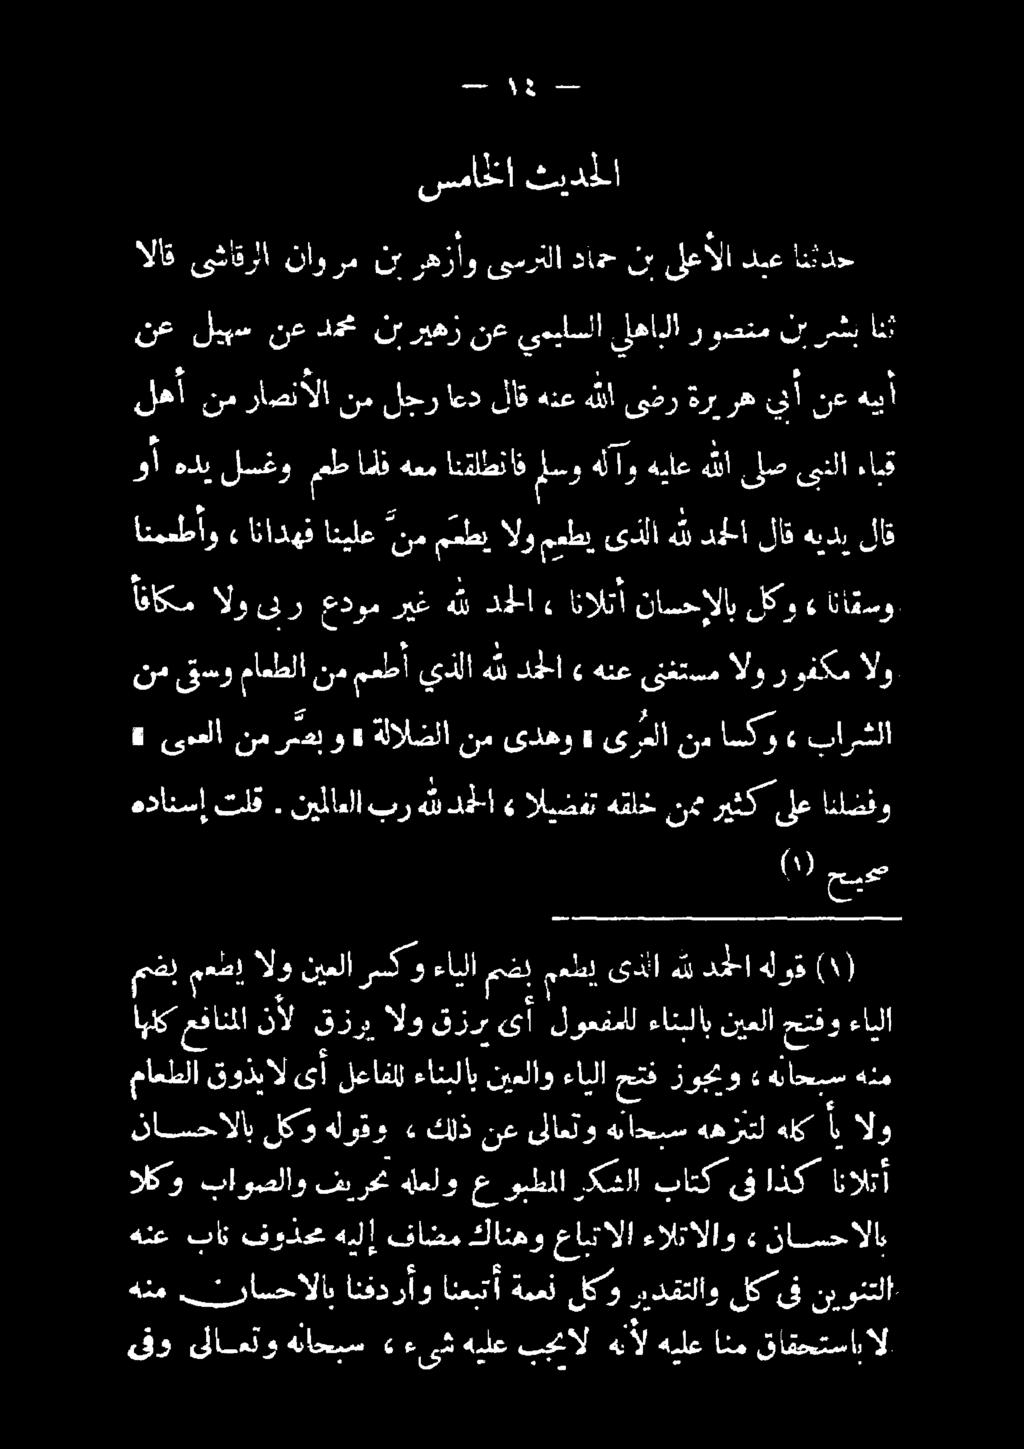 — ١٤ —
الحديث الخامس
حدثنا عبد الأعلى بن حماد النرسى وأزهر بن مروان الرقاشى قالا
ثنا بشر بن منصور الباهلي السليمي عن زهير بن محمد عن سهيل عن
أبيه عن أبي هريرة رضى الله عنه قال دعا رجل من الأنصار من أهل
قباء النبى صلى الله عليه وآله وسلم فانطلقنا معه فلما طعم وغسل يده أو
قال يديه قال الحمد لله الذى يطعِم ولا يطعَم منَّ علينا فهدانا ، وأطعمنا
وسقانا ، وكل بالإحسان أتلانا ، الحمد لله غير مودع ربى ولا مكافأ
ولا مكفور ولا مستغنى عنه ، الحمد لله الذي أطعم من الطعام وسقى من
الشراب ، وكسا من العُرى ، وهدى من الضلالة ، وبصَّر من العمى ،
وفضلنا على كثير ممن خلقه تفضيلا ، الحمد لله رب العالمين . قلت إسناده
صحيح (١)
(١) قوله الحمد لله الذى يطعم بضم الياء وكسر العين ولا يطعم بضم
الياء وفتح العين بالبناء للمفعول أى يرزق ولا يرزق لأن المنافع كلها
منه سبحانه ، ويجوز فتح الياء والعين بالبناء للفاعل أى لايذوق الطعام
ولا يأكله لتنزهه سبحانه وتعالى عن ذلك ، وقوله وكل بالاحسان
أتلانا كذا فى كتاب الشكر المطبوع ولعله تحريف والصواب وكلا
بالاحسان ، والاتلاء الاتباع وهناك مضاف إليه محذوف ناب عنه
التنوين فى كل والتقدير وكل نعمة أتبعنا وأردفنا بالاحسان منه
لاباستحقاق منا عليه لأنه لايجب عليه شىء ، سبحانه وتعالى وفى